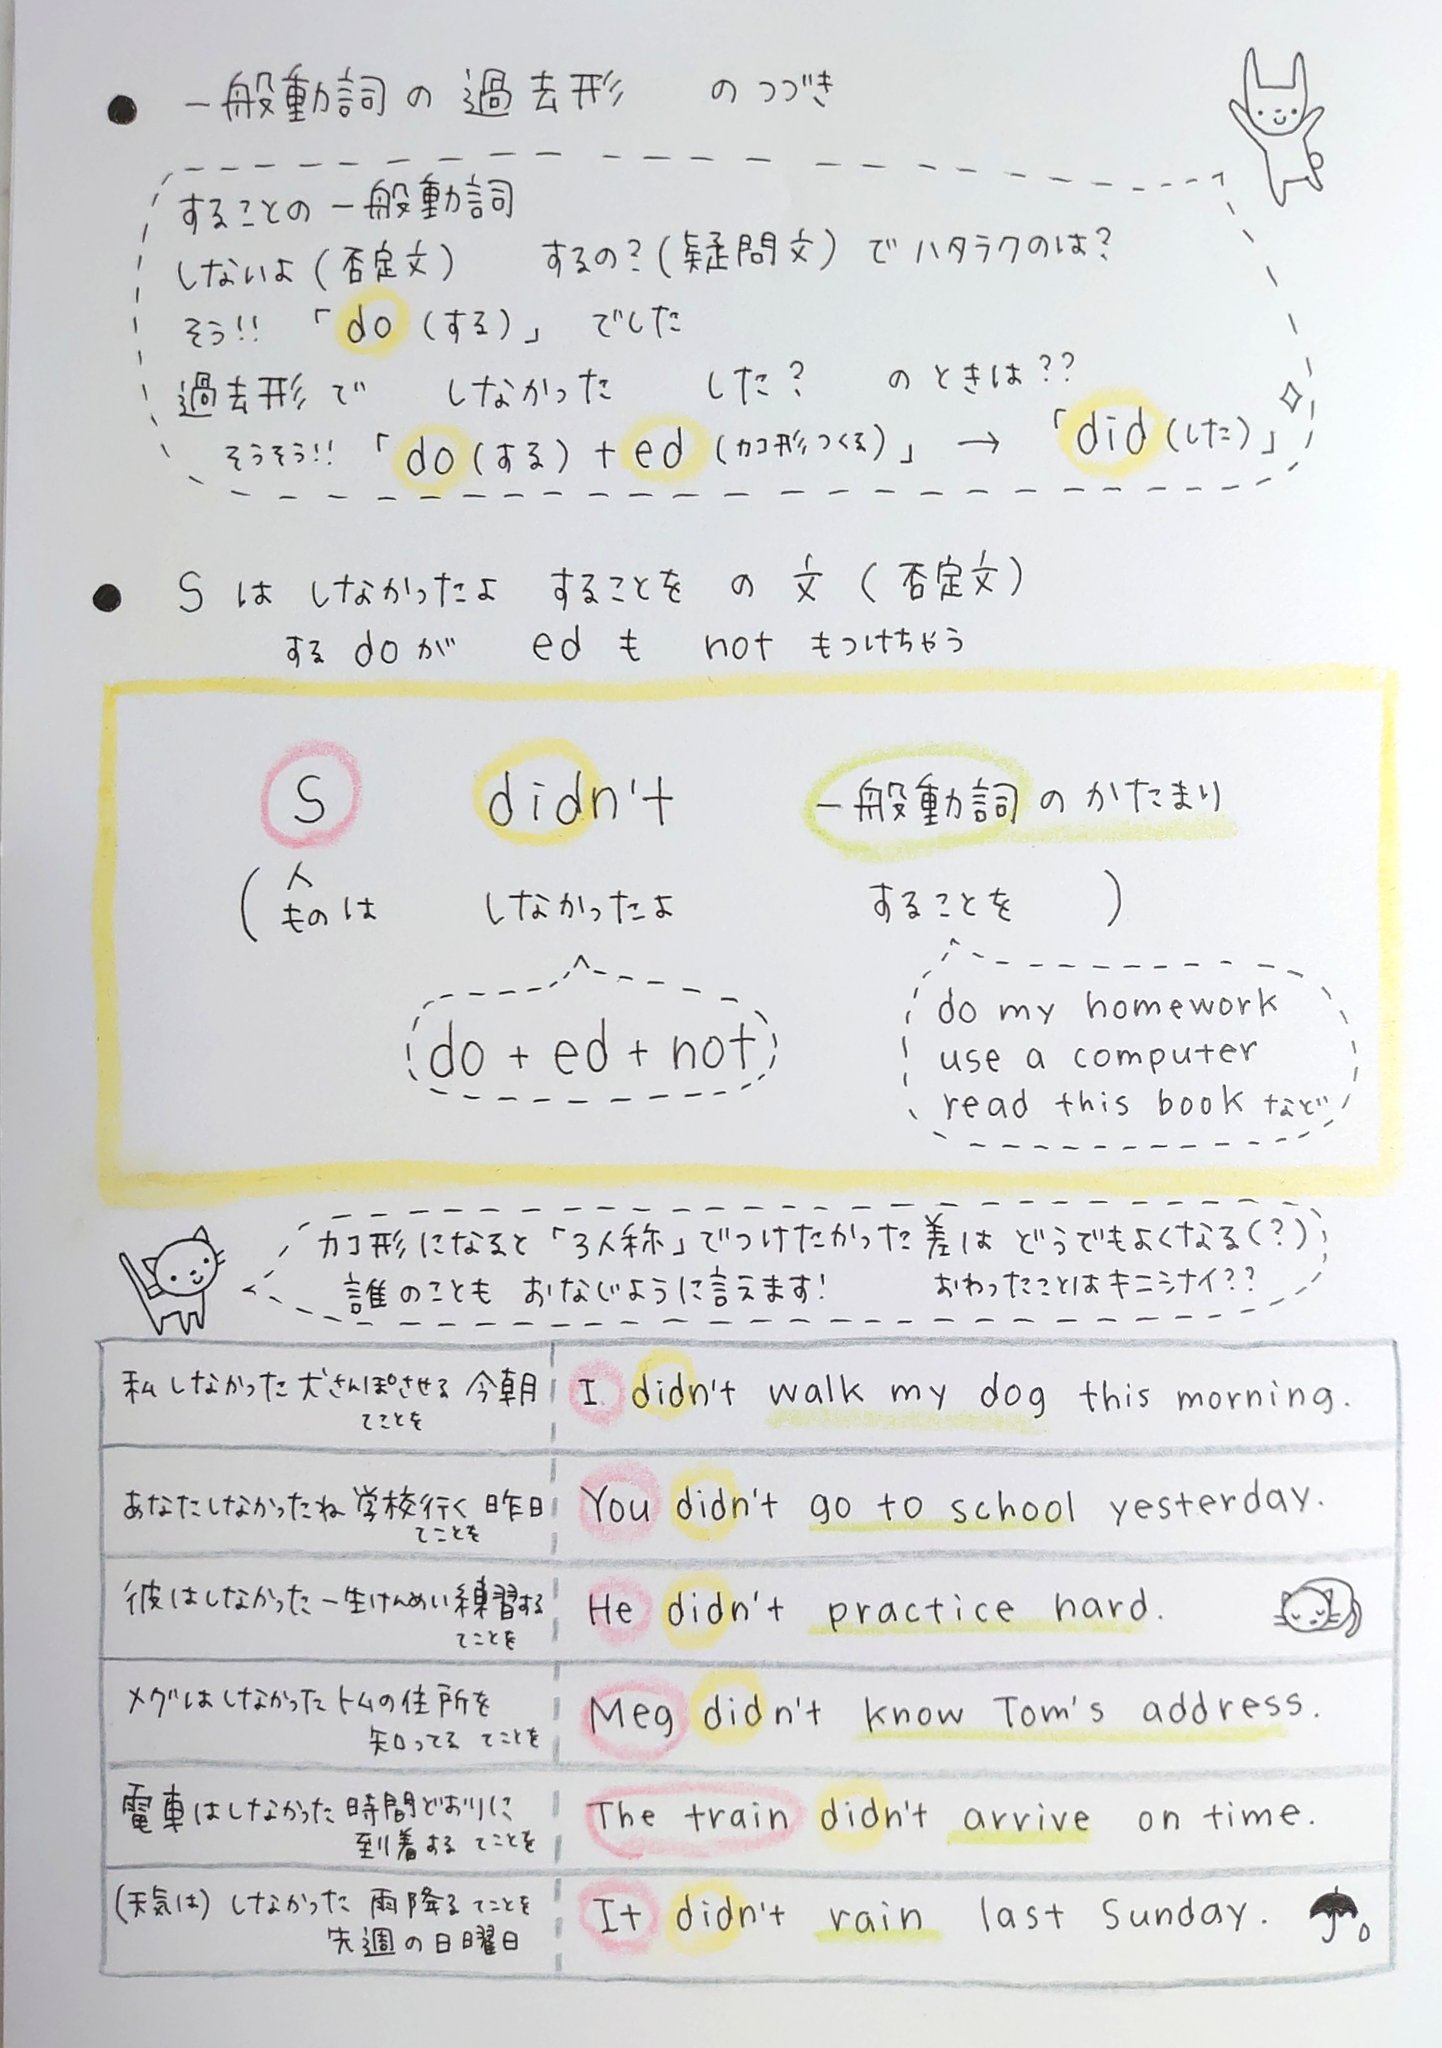 ● 一般動詞の過去形 のつづき
することの一般動詞
しないよ(否定文) するの?(疑問文)でハタラクのは?
そう!! 「do(する)」 でした
過去形で しなかった した? のときは??
そうそう!! 「do(する)+ed(カコ形つくる)」→「did(した)」
● S は しなかったよ することを の 文 (否定文)
する do が ed も not もつけちゃう
S didn't 一般動詞のかたまり
(人ものは しなかったよ することを )
do + ed + not
do my homework
use a computer
read this book など
カコ形になると「3人称」でつけたかった差は どうでもよくなる(?)
誰のことも おなじように言えます! おわったことはキニシナイ??
私しなかった犬さんぽさせる 今朝
てことを
I didn't walk my dog this morning.
あなたしなかったね学校行く 昨日
てことを
You didn't go to school yesterday.
彼はしなかった一生けんめい練習する
てことを
He didn't practice hard.
メグはしなかったトムの住所を
知ってる てことを
Meg didn't know Tom's address.
電車はしなかった時間どおりに
到着する てことを
The train didn't arrive on time.
(天気は) しなかった 雨降るてことを
先週の日曜日
It didn't rain last Sunday.